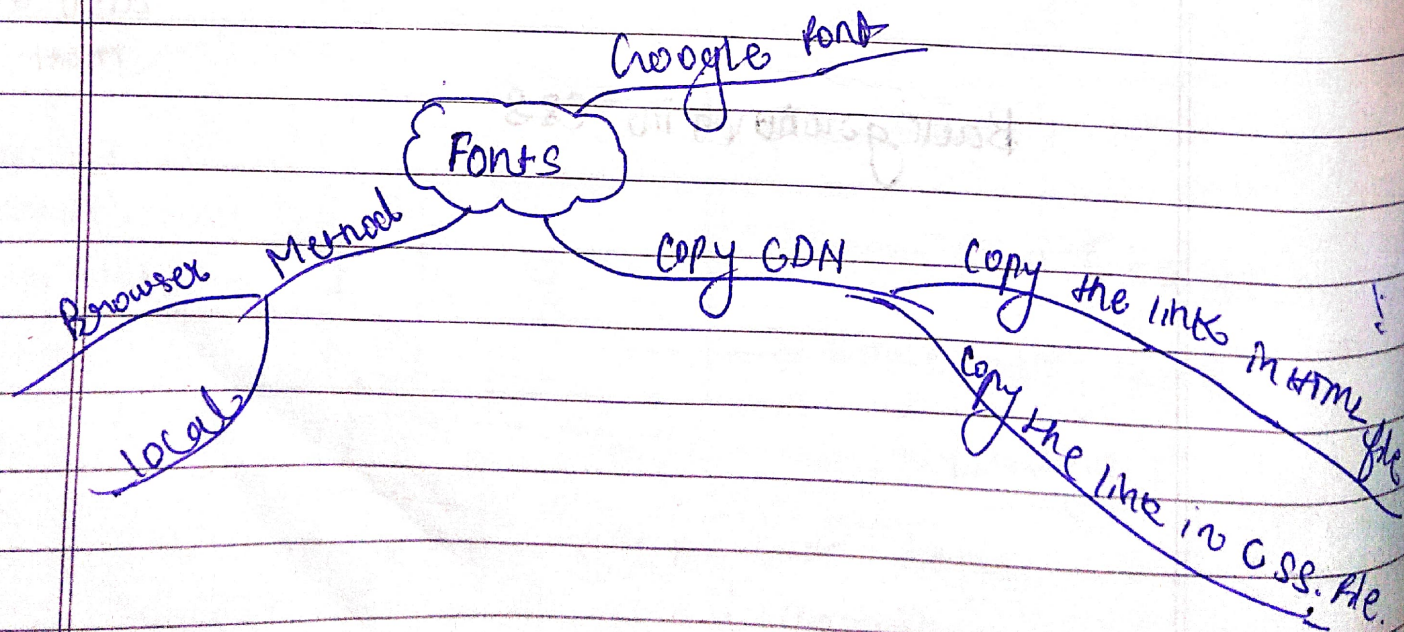 Google font
Fonts
Method
Browser
local
Copy CDN
Copy the link in HTML file
Copy the link in CSS. file.